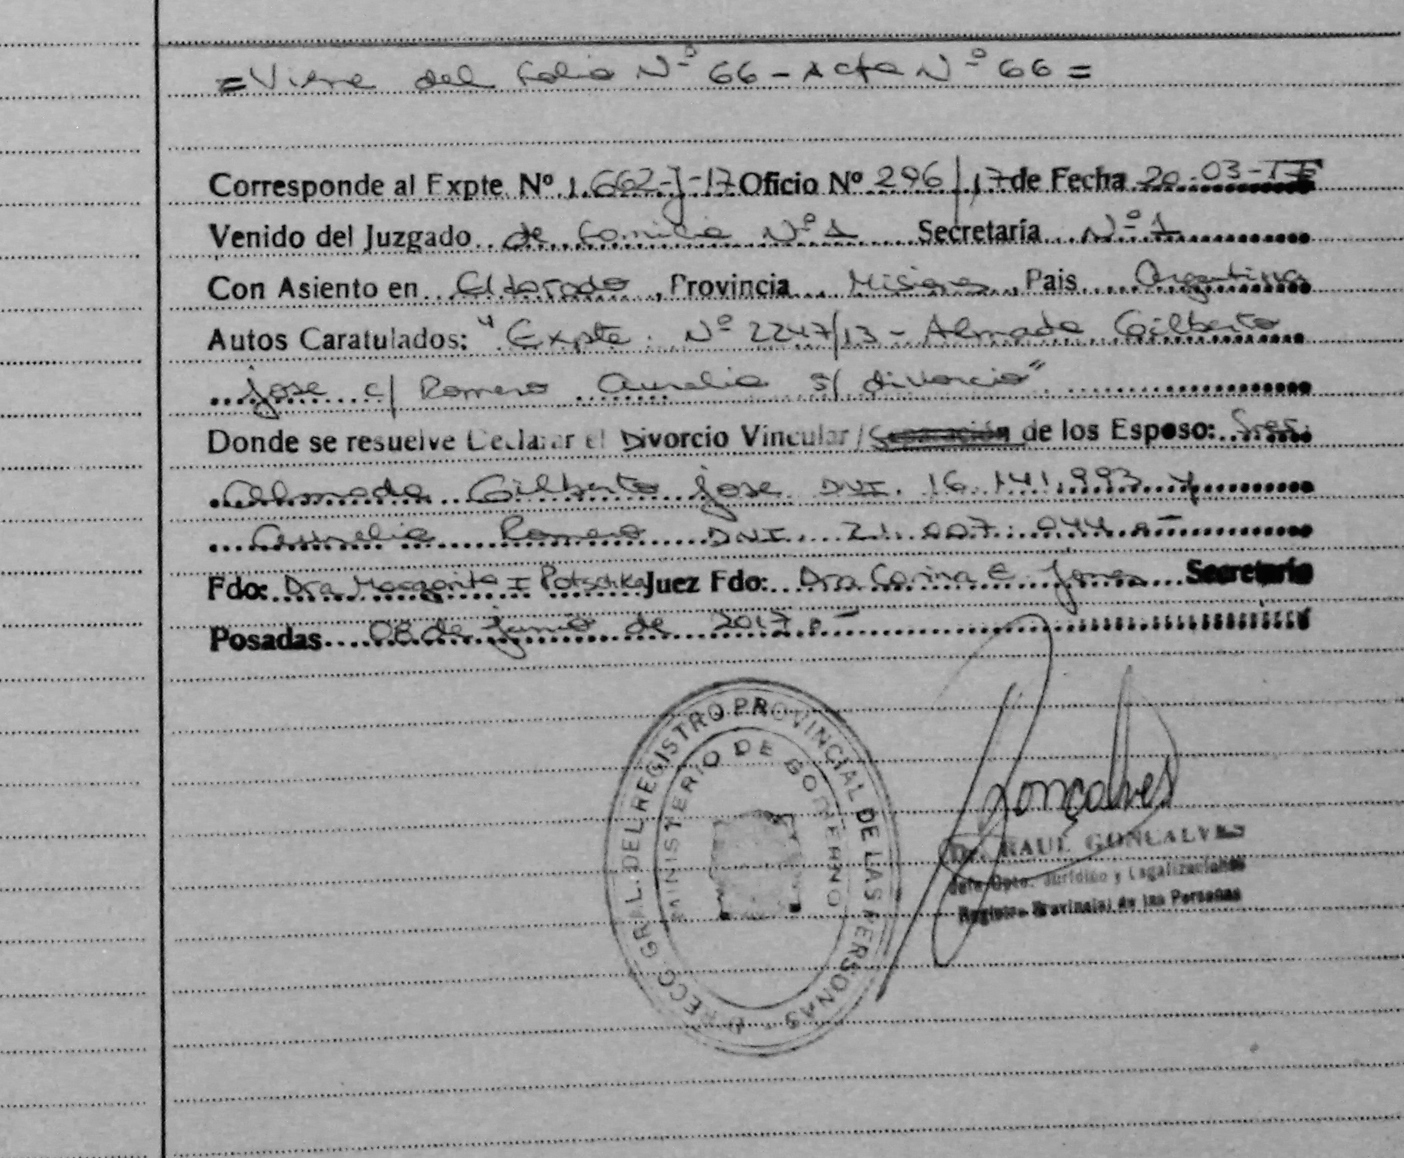 = Viene del Folio Nº 66 - Acta Nº 66 =
Corresponde al Expte. Nº 1.662-J-17 Oficio Nº 296/17 de Fecha 20-03-17
Venido del Juzgado de Familia Nº 1 Secretaría Nº 1
Con Asiento en Eldorado, Provincia Misiones, Pais Argentina
Autos Caratulados: "Expte. Nº 2247/13 - Almada Gilberto
jose c/ Romero Aurelia s/ divorcio"
Donde se resuelve Declarar el Divorcio Vincular/Separación de los Esposo: Sres.
Almada Gilberto jose DNI. 16.141.993 y
Aurelia Romero DNI. 21.007.044.-
Fdo: Dra Margarita I Potschka Juez Fdo: Dra Carina E. Jones Secretario
Posadas 08 de junio de 2017.-
DIRECC. GRAL. DEL REGISTRO PROVINCIAL DE LAS PERSONAS
MINISTERIO DE GOBIERNO
Gonçalves
Dr. RAUL GONCALVES
Jefe Dpto. Jurídico y Legalizaciones
Registro Provincial de las Personas